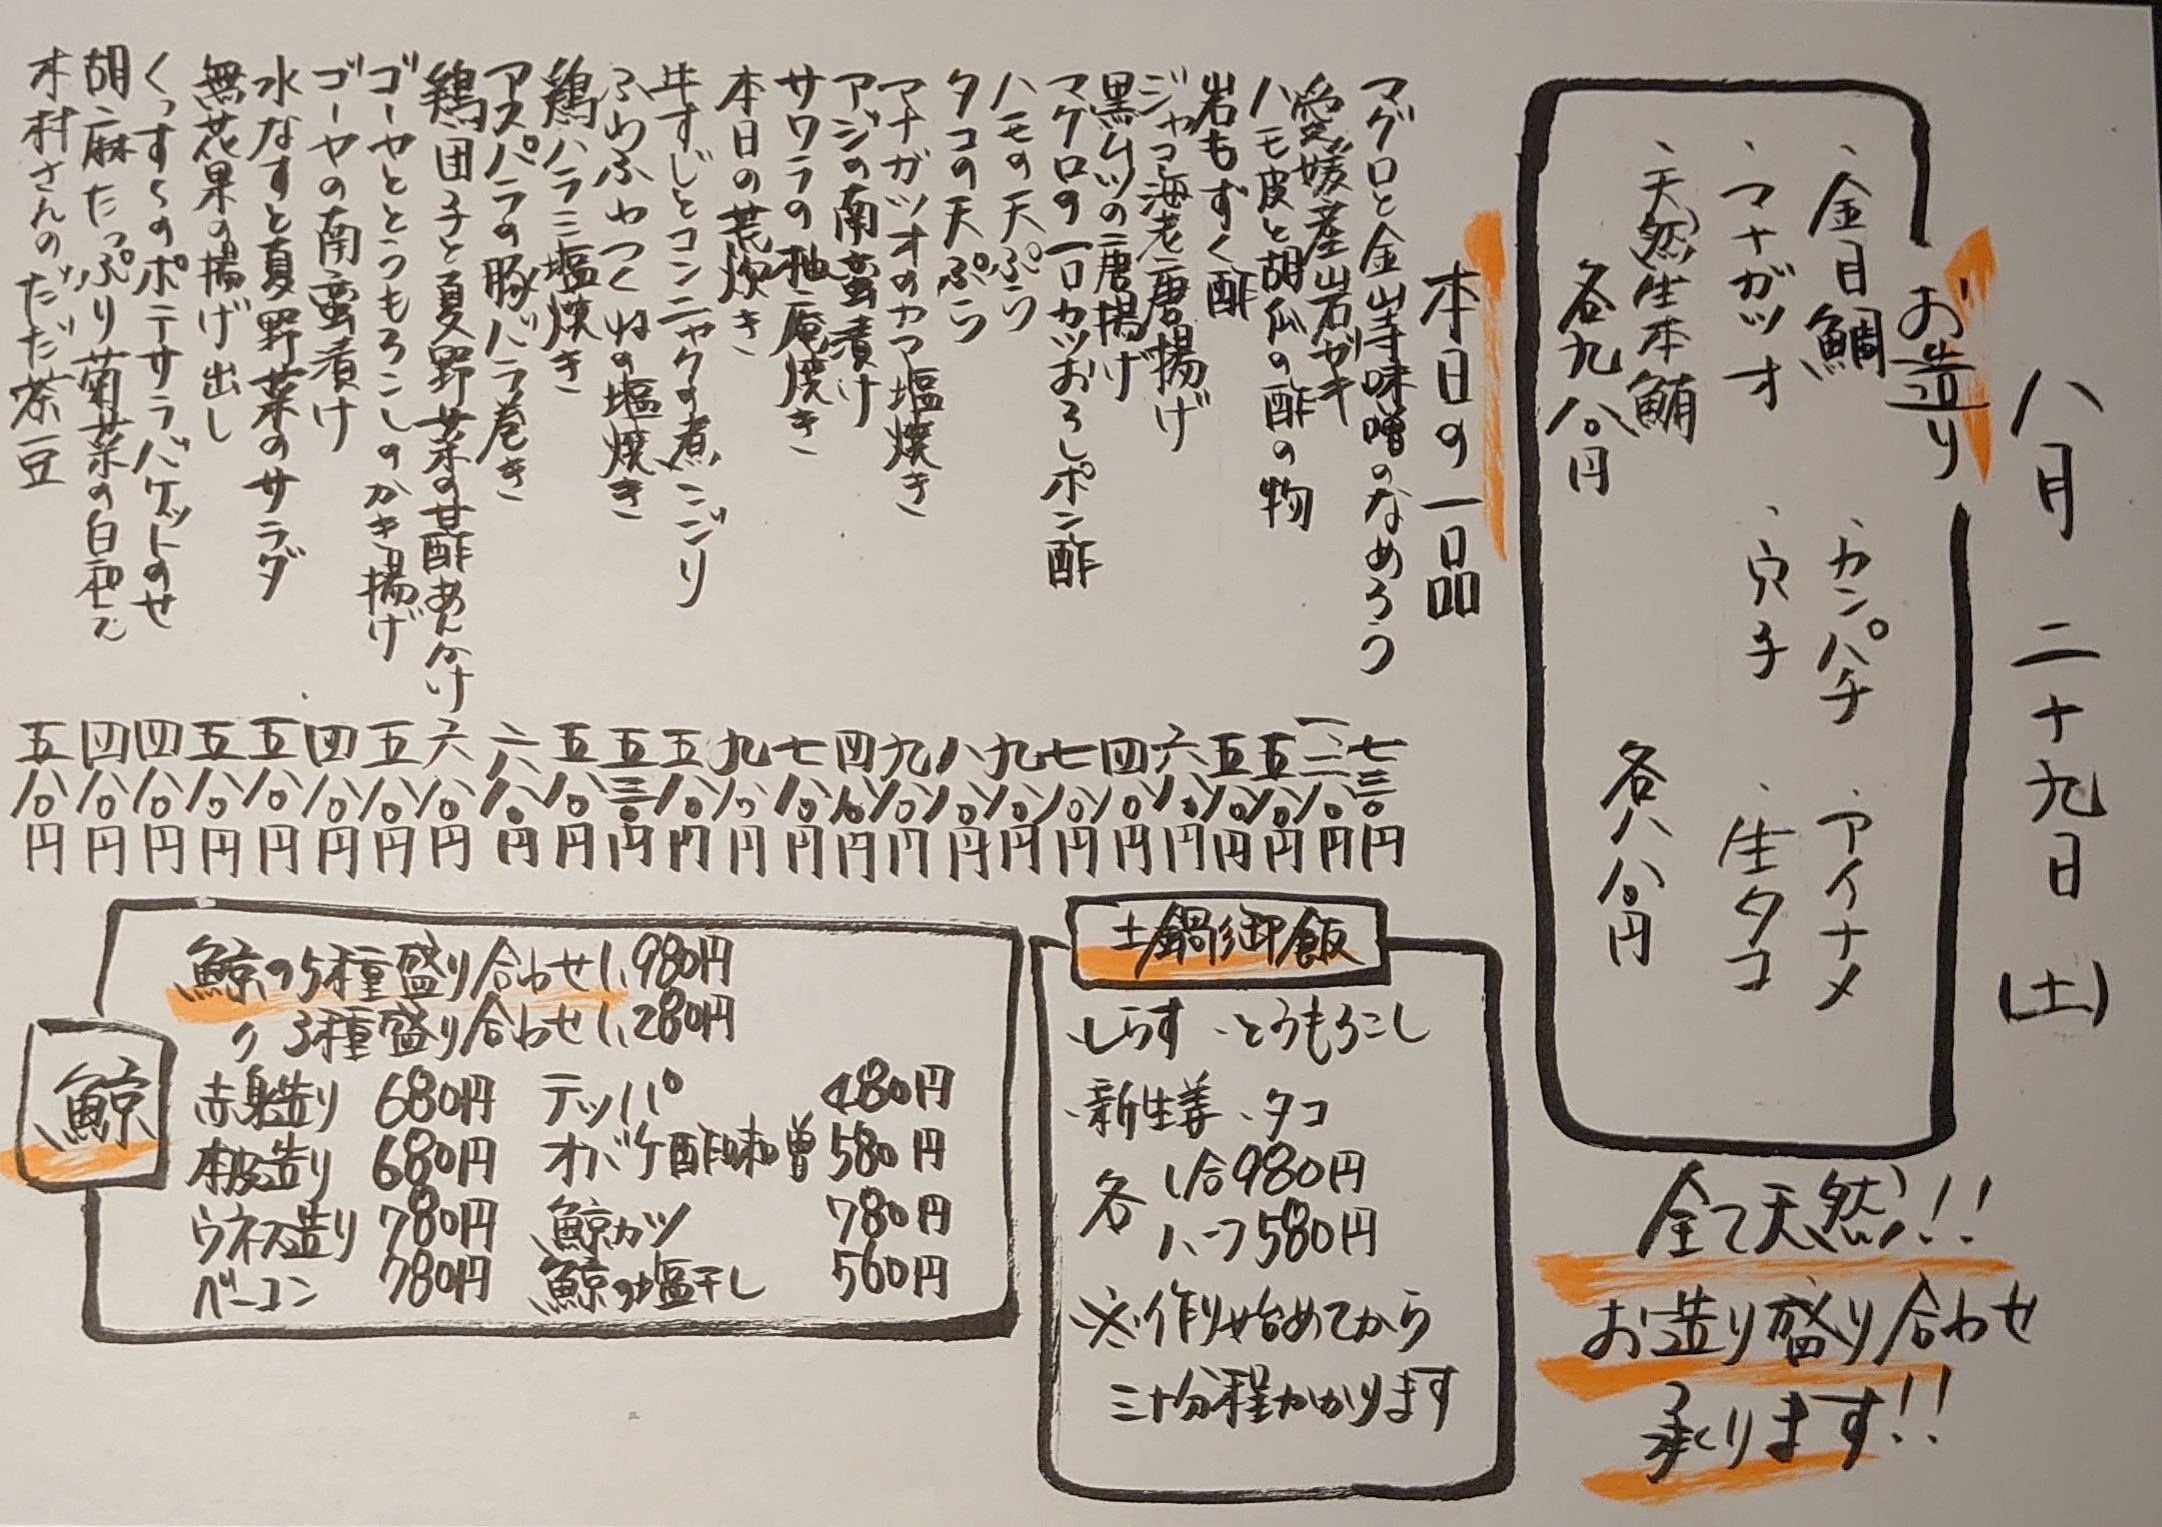 八月二十九日(土)
お造り
、金目鯛 、カンパチ 、アイナメ
、マナガツオ 、穴子 、生タコ
、天然生本鮪
各九八〇円 各八八〇円
全て天然!!
お造り盛り合わせ
承ります!!
本日の一品
マグロと金山寺味噌のなめろう 七三〇円
愛媛産岩ガキ 一、二八〇円
ハモ皮と胡瓜の酢の物 五八〇円
岩もずく酢 五八〇円
ジャコ海老唐揚げ 六八〇円
黒ムツの唐揚げ 四八〇円
マグロの一口カツおろしポン酢 七八〇円
ハモの天ぷら 九八〇円
タコの天ぷら 八八〇円
マナガツオのカマ塩焼き 九八〇円
アジの南蛮漬け 四八〇円
サワラの柚庵焼き 七八〇円
本日の荒炊き 九八〇円
牛すじとコンニャクの煮こごり 五八〇円
ふわふわつくねの塩焼き 五三〇円
鶏ハラミ塩焼き 五八〇円
アスパラの豚バラ巻き 六八〇円
鶏団子と夏野菜の甘酢あんかけ 六八〇円
ゴーヤととうもろこしのかき揚げ 五八〇円
ゴーヤの南蛮煮け 四八〇円
水なすと夏野菜のサラダ 五八〇円
無花果の揚げ出し 五八〇円
くっすらのポテサラバケットのせ 四八〇円
胡麻たっぷり菊菜の白和え 四八〇円
木村さんのだだ茶豆 五八〇円
土鍋御飯
、しらす 、とうもろこし
、新生姜 、タコ
各 1合980円
ハーフ580円
※作り始めてから
三十分程かかります
鯨
鯨の5種盛り合わせ1,980円
〃 3種盛り合わせ1,280円
赤身造り 680円 テッパ 480円
本皮造り 680円 オバケ酢味噌 580円
ウネス造り 780円 鯨カツ 780円
ベーコン 780円 鯨の塩干し 560円